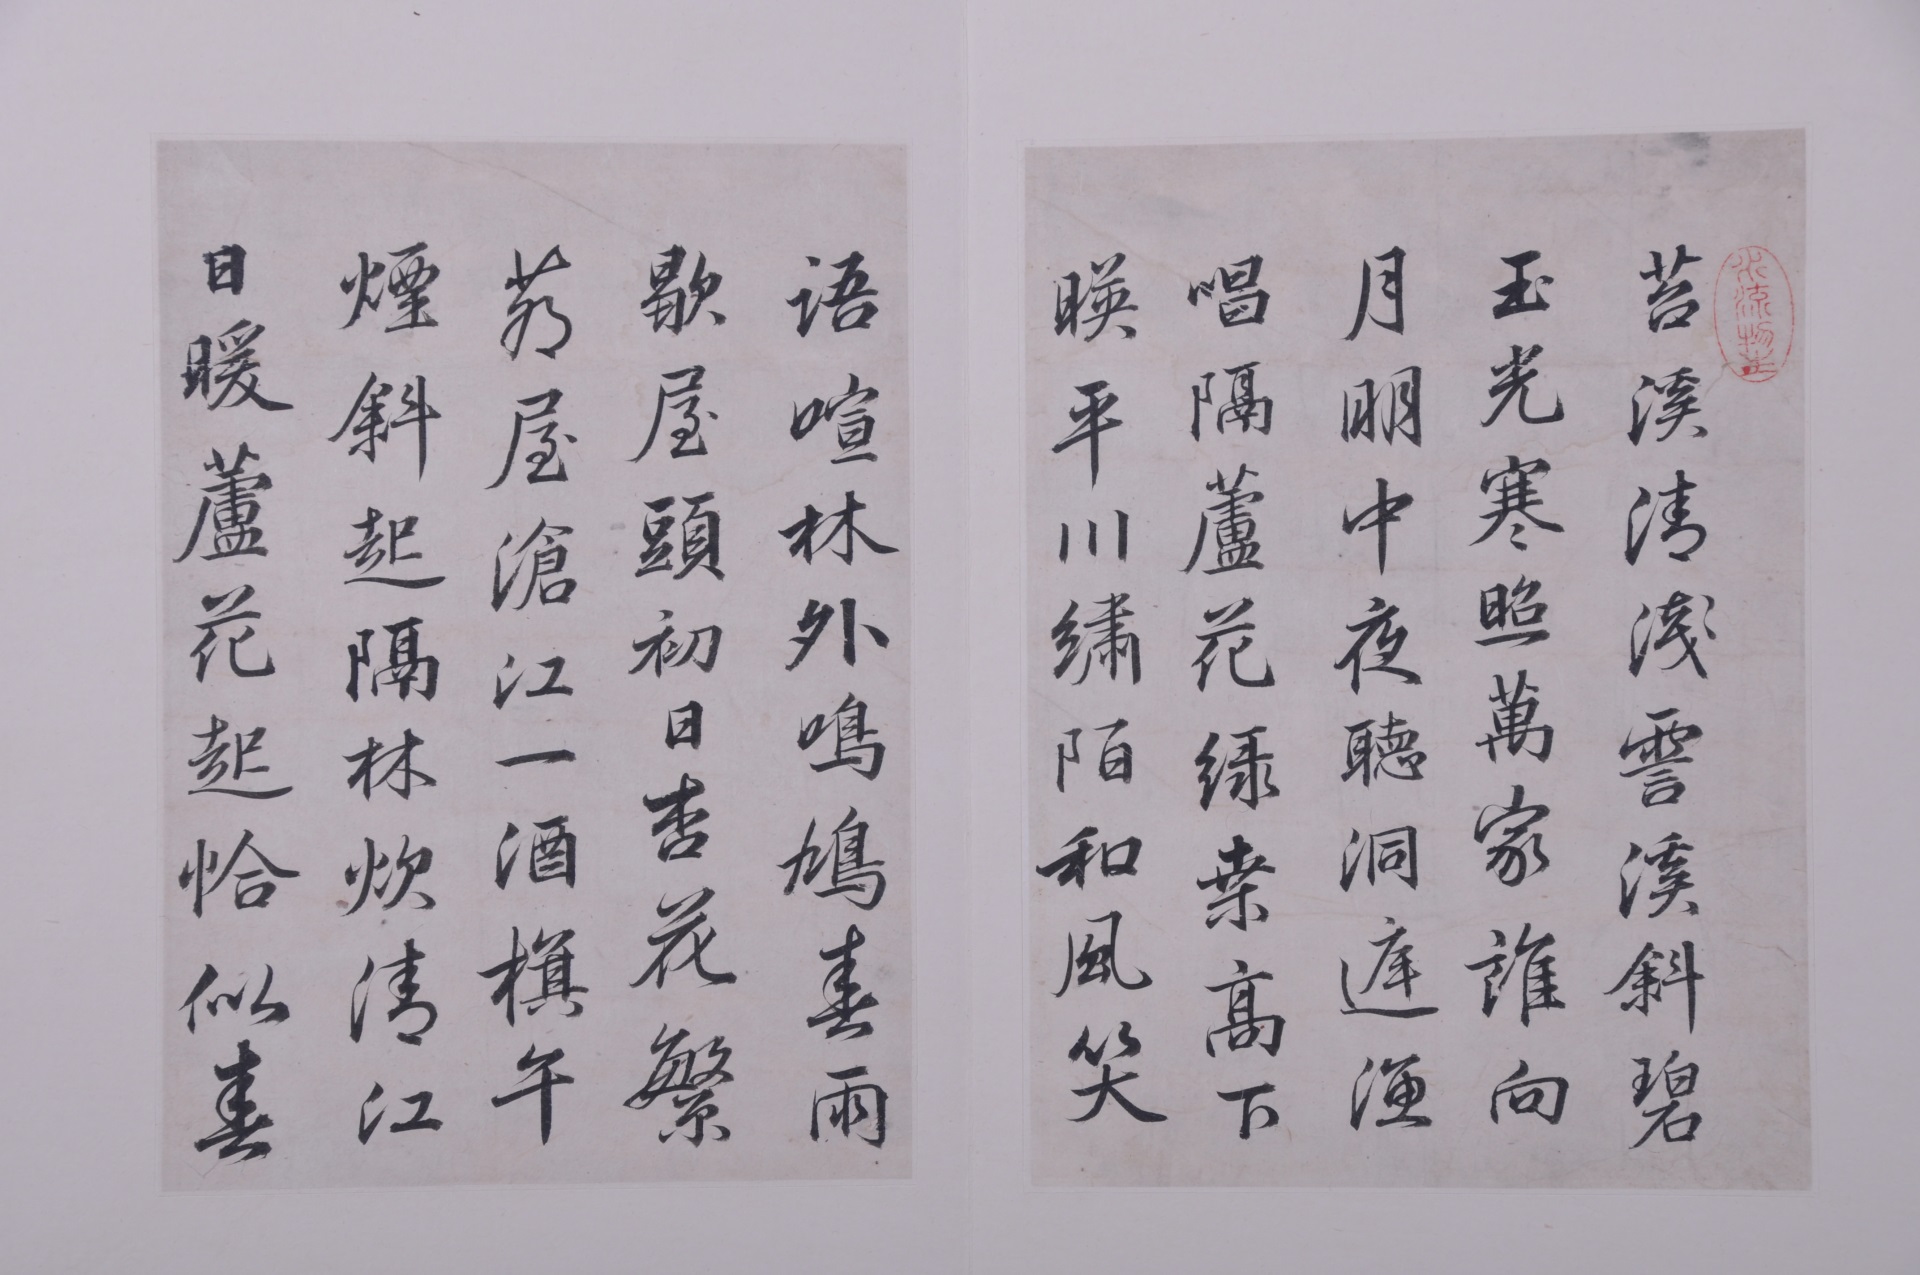 苕溪清淺霅溪斜碧
玉光寒照萬家誰向
月明中夜聽洞遲漁
唱隔蘆花綠桒高下
暎平川繡陌和風笑
語喧林外鳴鳩春雨
歇屋頭初日杏花繁
茆屋滄江一酒槙午
煙斜起隔林炊清江
日暖蘆花起恰似春